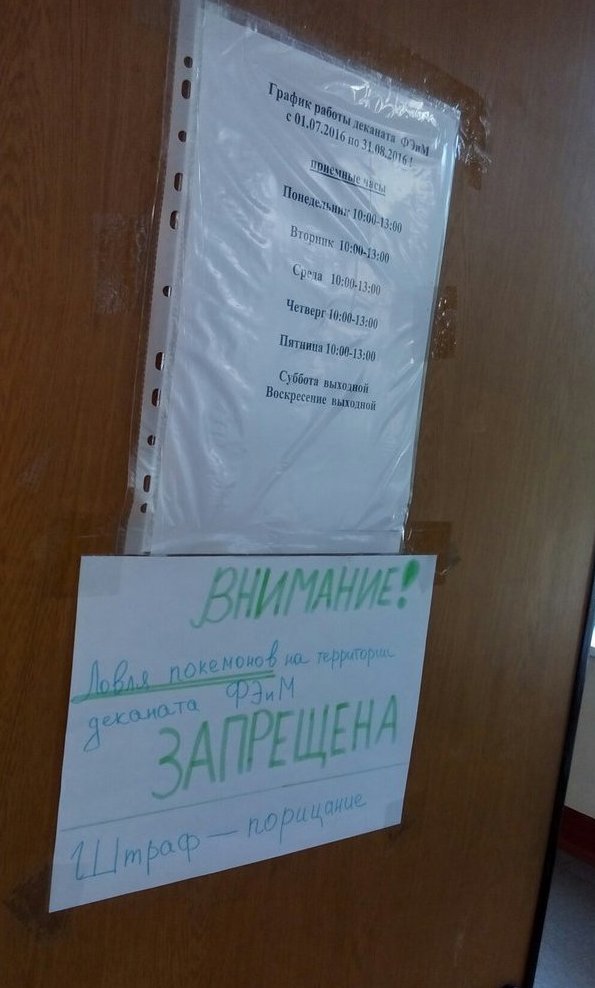 График работы деканата ФЭиМ
с 01.07.2016 по 31.08.2016!
приемные часы
Понедельник 10:00-13:00
Вторник 10:00-13:00
Среда 10:00-13:00
Четверг 10:00-13:00
Пятница 10:00-13:00
Суббота выходной
Воскресение выходной
ВНИМАНИЕ!
Ловля покемонов на территории
деканата ФЭиМ
ЗАПРЕЩЕНА
Штраф — порицание